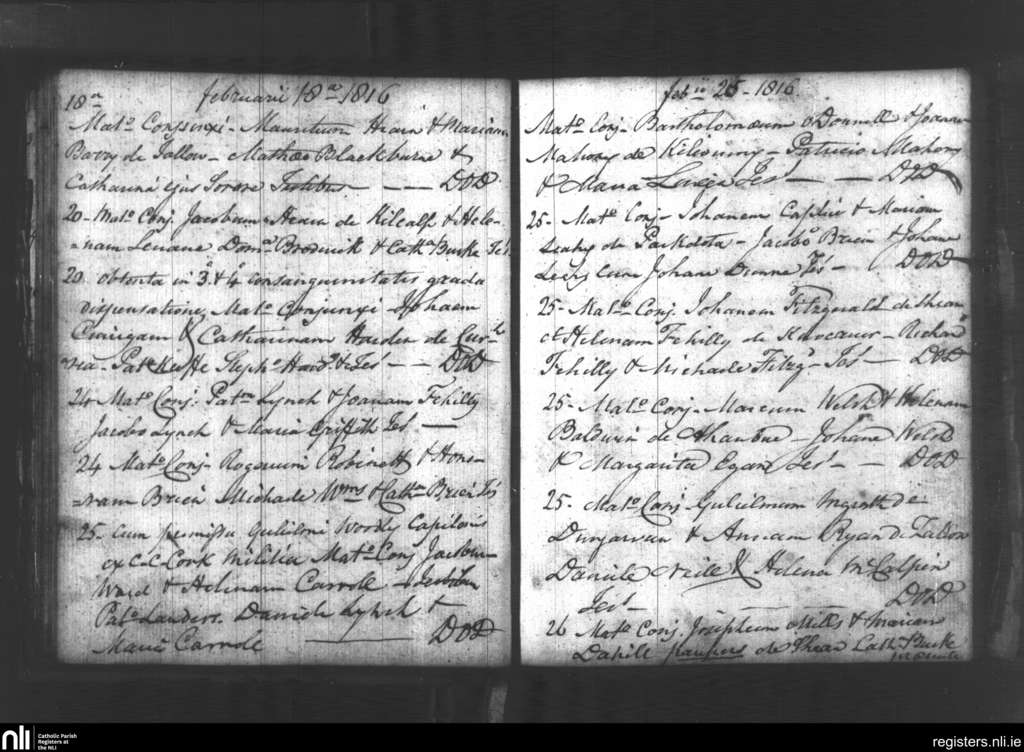 februarii 18a 1816
18a
Mato Conjunxi - Mauritium Hearn & Mariam
Barry de Tallow - Matheo Blackburne &
Catharina ejus Sorore Testibus - - - DOD
20 - Mato Conj. Jacobum Hearn de Kilcalf & Hele-
=nam Lenane Dono Broderick & Catha Burke Tes
20 obtenta in 3o & 4o consanguinitatis gradu
dispensatione, Mato Conjunxi - Johaem
& Catharinam Haiden de
- Pat Keeffe Steph Tes - - DOD
24 - Mato Conj. Patm Lynch & Joanam Fehilly
Jacobo Lynch & Maria Griffith Tes -
24 Mato Conj - Robinett & Hono-
=ram Brien Michaele Wms & Catha Brien Tes
25 - Cum permissu Gulielmi Capitanis
ex Cork Militia Mato Conj Jacobum
Ward & Helenam Carrole - Testibus
Pato Landers. Daniele Lynch &
Maria Carrole DOD
febii 25 - 1816
Mato Conj - Bartholomaeum oDonnell & Joanam
Mahony de - Patricio Mahony
& Maria Tes - - DOD
25 - Mato Conj - Johanem & Mariam
Leahy de Parkdota - Jacobo Brien & Johane
Leahy cum Johane Tes - DOD
25 - Mato Conj. Johanem Fitzgerald de Shean
et Helenam Fehilly de - Richdo
Fehilly & Michaele Fitzg - Tes - DOD
25 - Mato Conj - Marcum Welsh & Helenam
Baldwin de - Johane Welsh
& Margarita Egan Tes - - DOD
25 - Mato Conj - Gulielmum de
Dungarvan & Annam Ryan de
Daniele Neill & Helena McCalpin
Tes - DOD
26 Mato Conj. Josephum & Mariam
Dahill paupers de Shean Cath Burke
nli
Catholic Parish
Registers at
the NLI
registers.nli.ie